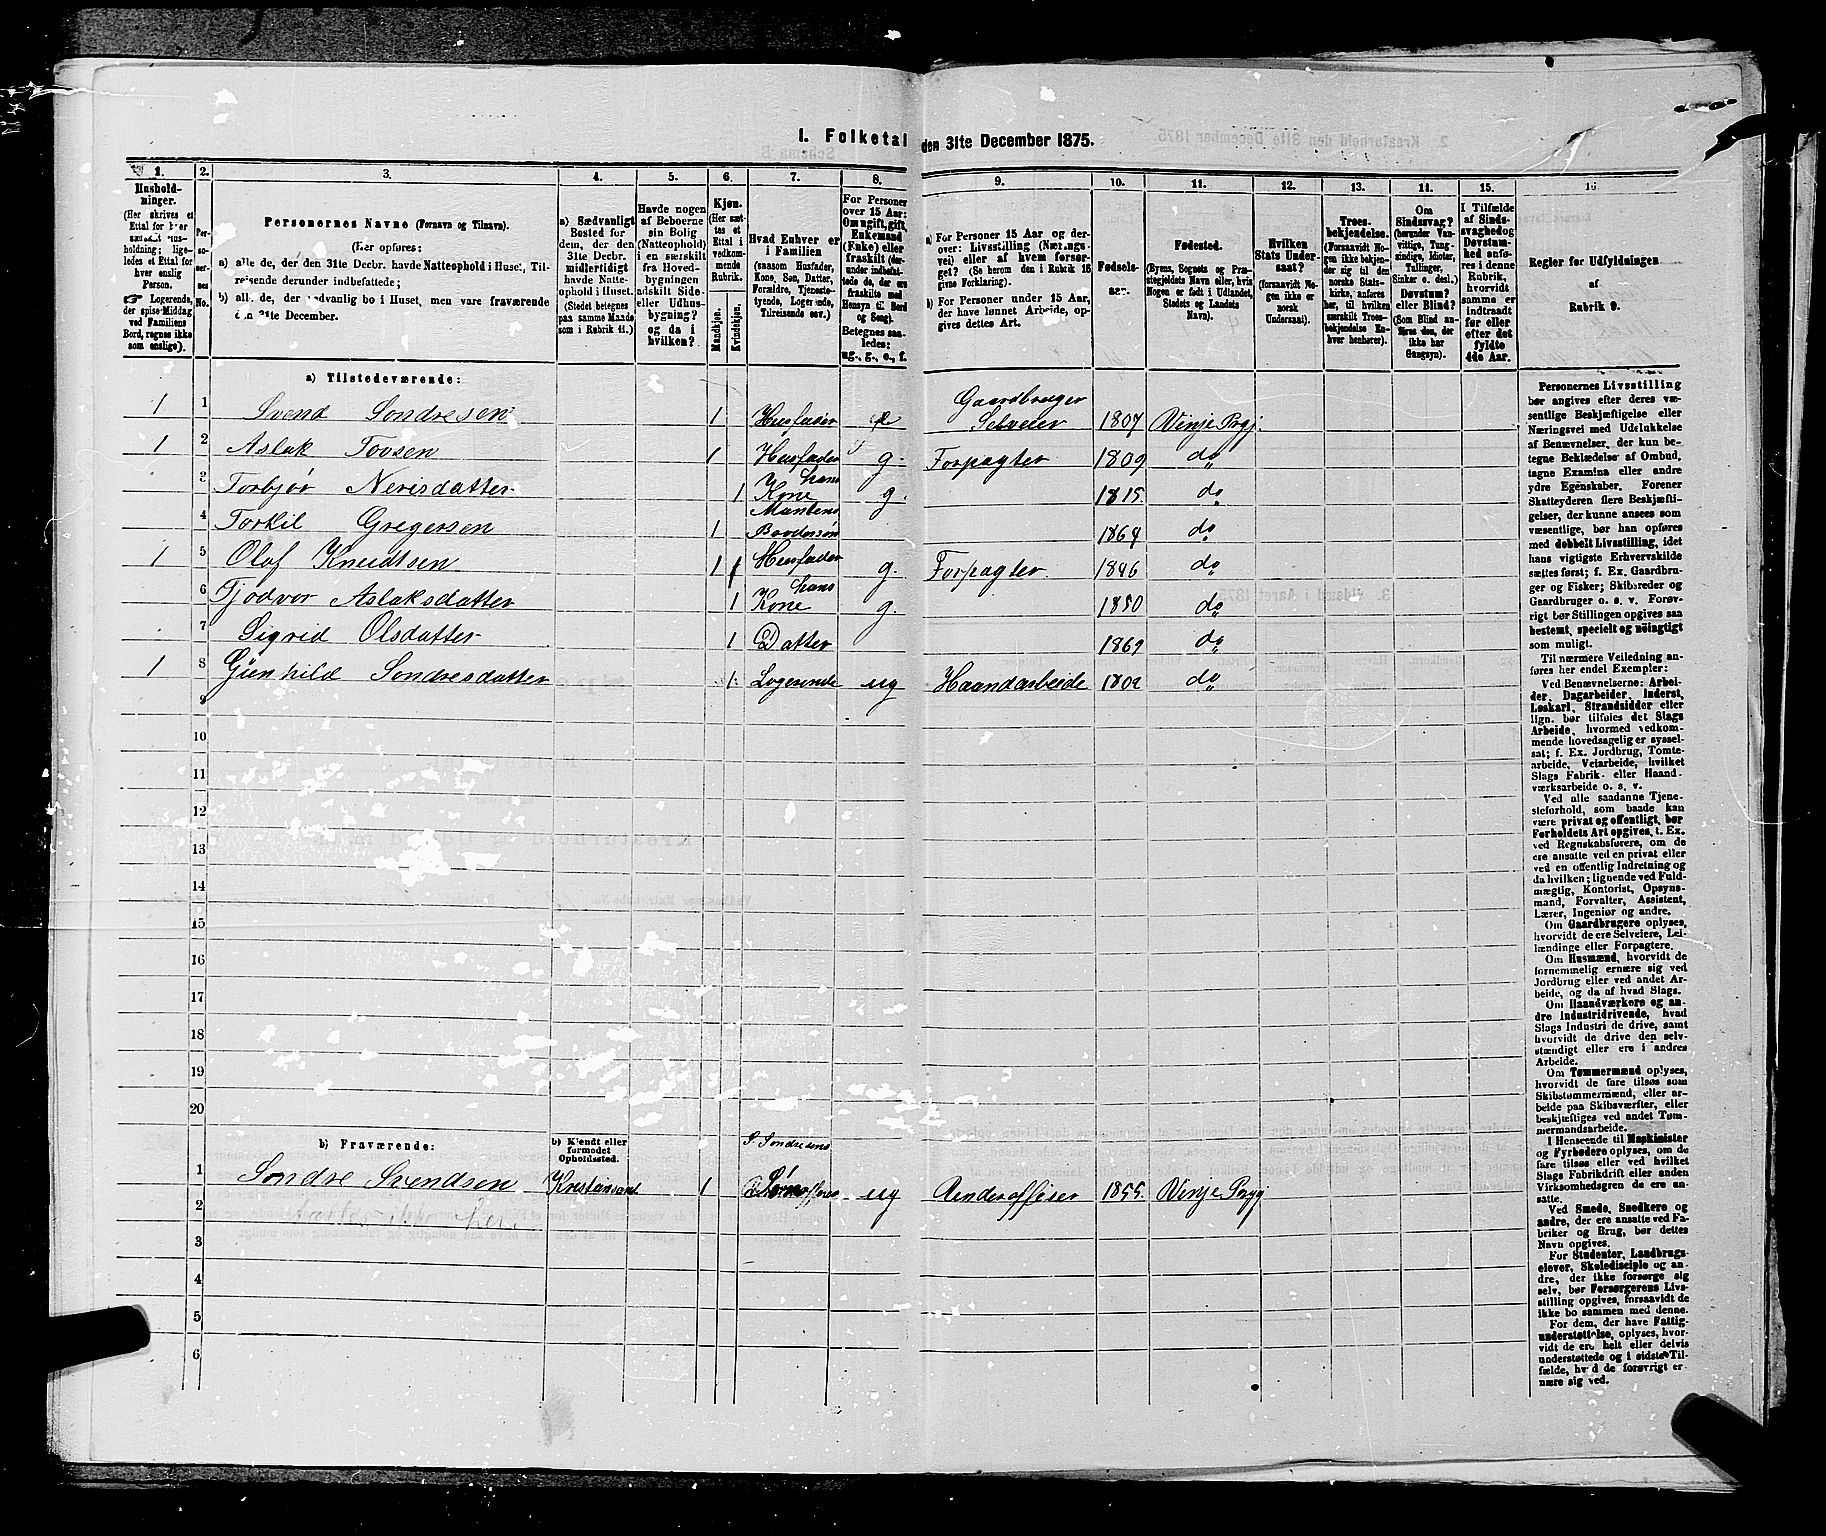 1. Folketal den 31te December 1875.
1. Hushold-
ninger.
(Her skrives et
Ettal for hver
særskilt Hus-
holdning; lige-
ledes et Ettal for
hver enslig
Person.
Logerende,
der spise Middag
ved Familiens
Bord, regnes ikke
som enslige).
2. Per-
soner-
nes
No.
3. Personernes Navne (Fornavn og Tilnavn).
(Her opføres:
a) alle de, der den 31te Decbr. havde Natteophold i Huset, Til-
reisende derunder indbefattede;
b) alle de, der sædvanlig bo i Huset, men vare fraværende
den 31te December.
4. a) Sædvanligt
Bosted for
dem, der den
31te Decbr.
midlertidigt
havde Natte-
ophold i Huset.
(Stedet betegnes
paa samme Maade
som i Rubrik 11.)
5. Havde nogen
af Beboerne
sin Bolig
(Natteophold)
i en særskilt
fra Hoved-
bygningen
adskilt Side-
eller Udhus-
bygning?
og da i
hvilken?
6. Kjøn.
(Her sæt-
tes et
Ettal i
vedkom-
mende
Rubrik.
Mandkjøn.
Kvindekjøn.
7. Hvad Enhver er
i Familien
(saasom Husfader,
Kone, Søn, Datter,
Forældre, Tjeneste-
tyende, Logerende,
Tilreisende osv.)
8. For Personer
over 15 Aar:
Om ugift, gift,
Enkemand
(Enke) eller
fraskilt (der-
under indbefat-
tede de, der ere
fraskilte med
Hensyn til Bord
og Seng).
Betegnes saa-
ledes:
ug., g., e., f.
9. a) For Personer 15 Aar og der-
over: Livsstilling (Nærings-
vei) eller af hvem forsør-
get? (Se herom den i Rubrik 16
givne Forklaring).
b) For Personer under 15 Aar,
der have lønnet Arbeide, op-
gives dettes Art.
10. Fødsels-
aar.
11. Fødested.
(Byens, Sognets og Præ-
stegjeldets Navn eller, hvis
Nogen er født i Udlandet,
Stedets og Landets
Navn).
12. Hvilken
Stats Under-
saat?
(forsaavidt No-
gen ikke er
norsk
Undersaat).
13. Troes-
bekjendelse.
(Forsaavidt No-
gen ikke bekjen-
der sig til den
norske Stats-
kirke, anføres
her, til hvilken
særskilt Troes-
bekjendelse En-
hver henhører).
14. Om
Sindssvag?
(herunder Van-
vittige, Tung-
sindige, Idioter,
Tullinger,
Sinker o. desl.).
Døvstum?
eller Blind?
(Som Blind an-
føres den, der
ikke har
Gangsyn).
15. I Tilfælde
af Sinds-
svaghed og
Døvstum-
hed anfø-
res i denne
Rubrik,
hvorvidt
samme er
indtraadt
før eller
efter det
fyldte
4de Aar.
16. Regler for Udfyldningen
af
Rubrik 9.
a) Tilstedeværende:
1 1 Svend Sondresen 1 Husfader e Gaardbruger Selveier 1807 Vinje Prgj.
1 2 Aslak Tovsen 1 Husfader g. Forpagter 1809 do
3 Torbjør Nerisdatter 1 hans Kone g. 1815 do
4 Torkil Gregersen 1 Mandens Brodersøn 1864 do
1 5 Olaf Knudtsen 1 Husfader g. Forpagter 1846 do
6 Tjodvor Aslaksdatter 1 hans Kone g 1850 do
7 Sigrid Olsdatter 1 Datter 1869 do
1 8 Gunhild Sondresdatter 1 Logerende ug Haandarbeide 1802 do
9
10
11
12
13
14
15
16
17
18
19
20
b) Fraværende:
b) Kjendt eller
formodet
Opholdssted.
S. Sondresens
1 Sondre Svendsen Kristiansand 1 Søn ug Underofficer 1855 Vinje Prgj
2
3
4
5
6
Personernes Livsstilling
bør angives efter deres væ-
sentlige Beskjæftigelse eller
Næringsvei med Udelukkelse
af Benævnelser, der kun be-
tegne Beklædelse af Ombud,
tagne Examina eller andre
ydre Egenskaber. Forener
Skatteyderen flere Beskjæfti-
gelser, der kunne ansees som
væsentlige, bør han opføres
med dobbelt Livsstilling, idet
hans vigtigste Erhvervskilde
sættes først; f. Ex. Gaardbru-
ger og Fisker; Skibsreder og
Gaardbruger o. s. v. Forøv-
rigt bør Stillingen opgives saa
bestemt, specielt og nøiagtigt
som muligt.
Til nærmere Veiledning an-
føres her endel Exempler:
Ved Benævnelserne: Arbei-
der, Dagarbeider, Inderst,
Løskarl, Strandsidder eller
lign. bør tilføies det Slags
Arbeide, hvormed vedkom-
mende hovedsagelig er syssel-
sat; f. Ex. Jordbrug, Tomte-
arbeide, Veiarbeide, hvilket
Slags Fabrik- eller Haand-
værksarbeide o. s. v.
Ved alle saadanne Tjene-
steforhold, som baade kan
være privat og offentligt, bør
Forholdets Art opgives, t. Ex.
ved Regnskabsførere, om de
ere ansatte ved en privat eller
ved en offentlig Indretning og
da hvilken; lignende ved Fuld-
mægtig, Kontorist, Opsyns-
mand, Forvalter, Assistent,
Lærer, Ingeniør og andre.
Om Gaardbrugere oplyses,
hvorvidt de ere Selveiere, Lei-
lændinge eller Forpagtere.
Om Husmænd, hvorvidt de
fornemmelig ernære sig ved
Jordbrug eller ved andet Ar-
beide, og da af hvad Slags.
Om Haandværkere og an-
dre Industridrivende, hvad
Slags Industri de drive, samt
hvorvidt de drive den selv-
stændigt eller ere i andres
Arbeide.
Om Tømmermænd oplyses,
hvorvidt de fare tilsøs som
Skibstømmermænd, eller ar-
beide paa Skibsværfter, eller
beskjæftiges ved andet Tøm-
mermandsarbeide.
I Henseende til Maskinister
og Fyrbødere oplyses, om de
fare tilsøs eller ved hvilket
Slags Fabrikdrift eller anden
Virksomhedsgren de ere an-
satte.
Ved Smede, Snedkere og
andre, der ere ansatte ved Fa-
briker og Brug, bør dettes
Navn opgives.
For Studenter, Landbrugs-
elever, Skoledisciple og an-
dre, der ikke forsørge sig
selv, bør Forsørgerens Livs-
stilling opgives, forsaavidt de
ikke bo sammen med denne.
For dem, der have Fattig-
understøttelse, oplyses, hvor-
vidt de ere helt eller delvis
understøttede og i sidste Til-
fælde, hvad de forøvrigt er-
nære sig ved.